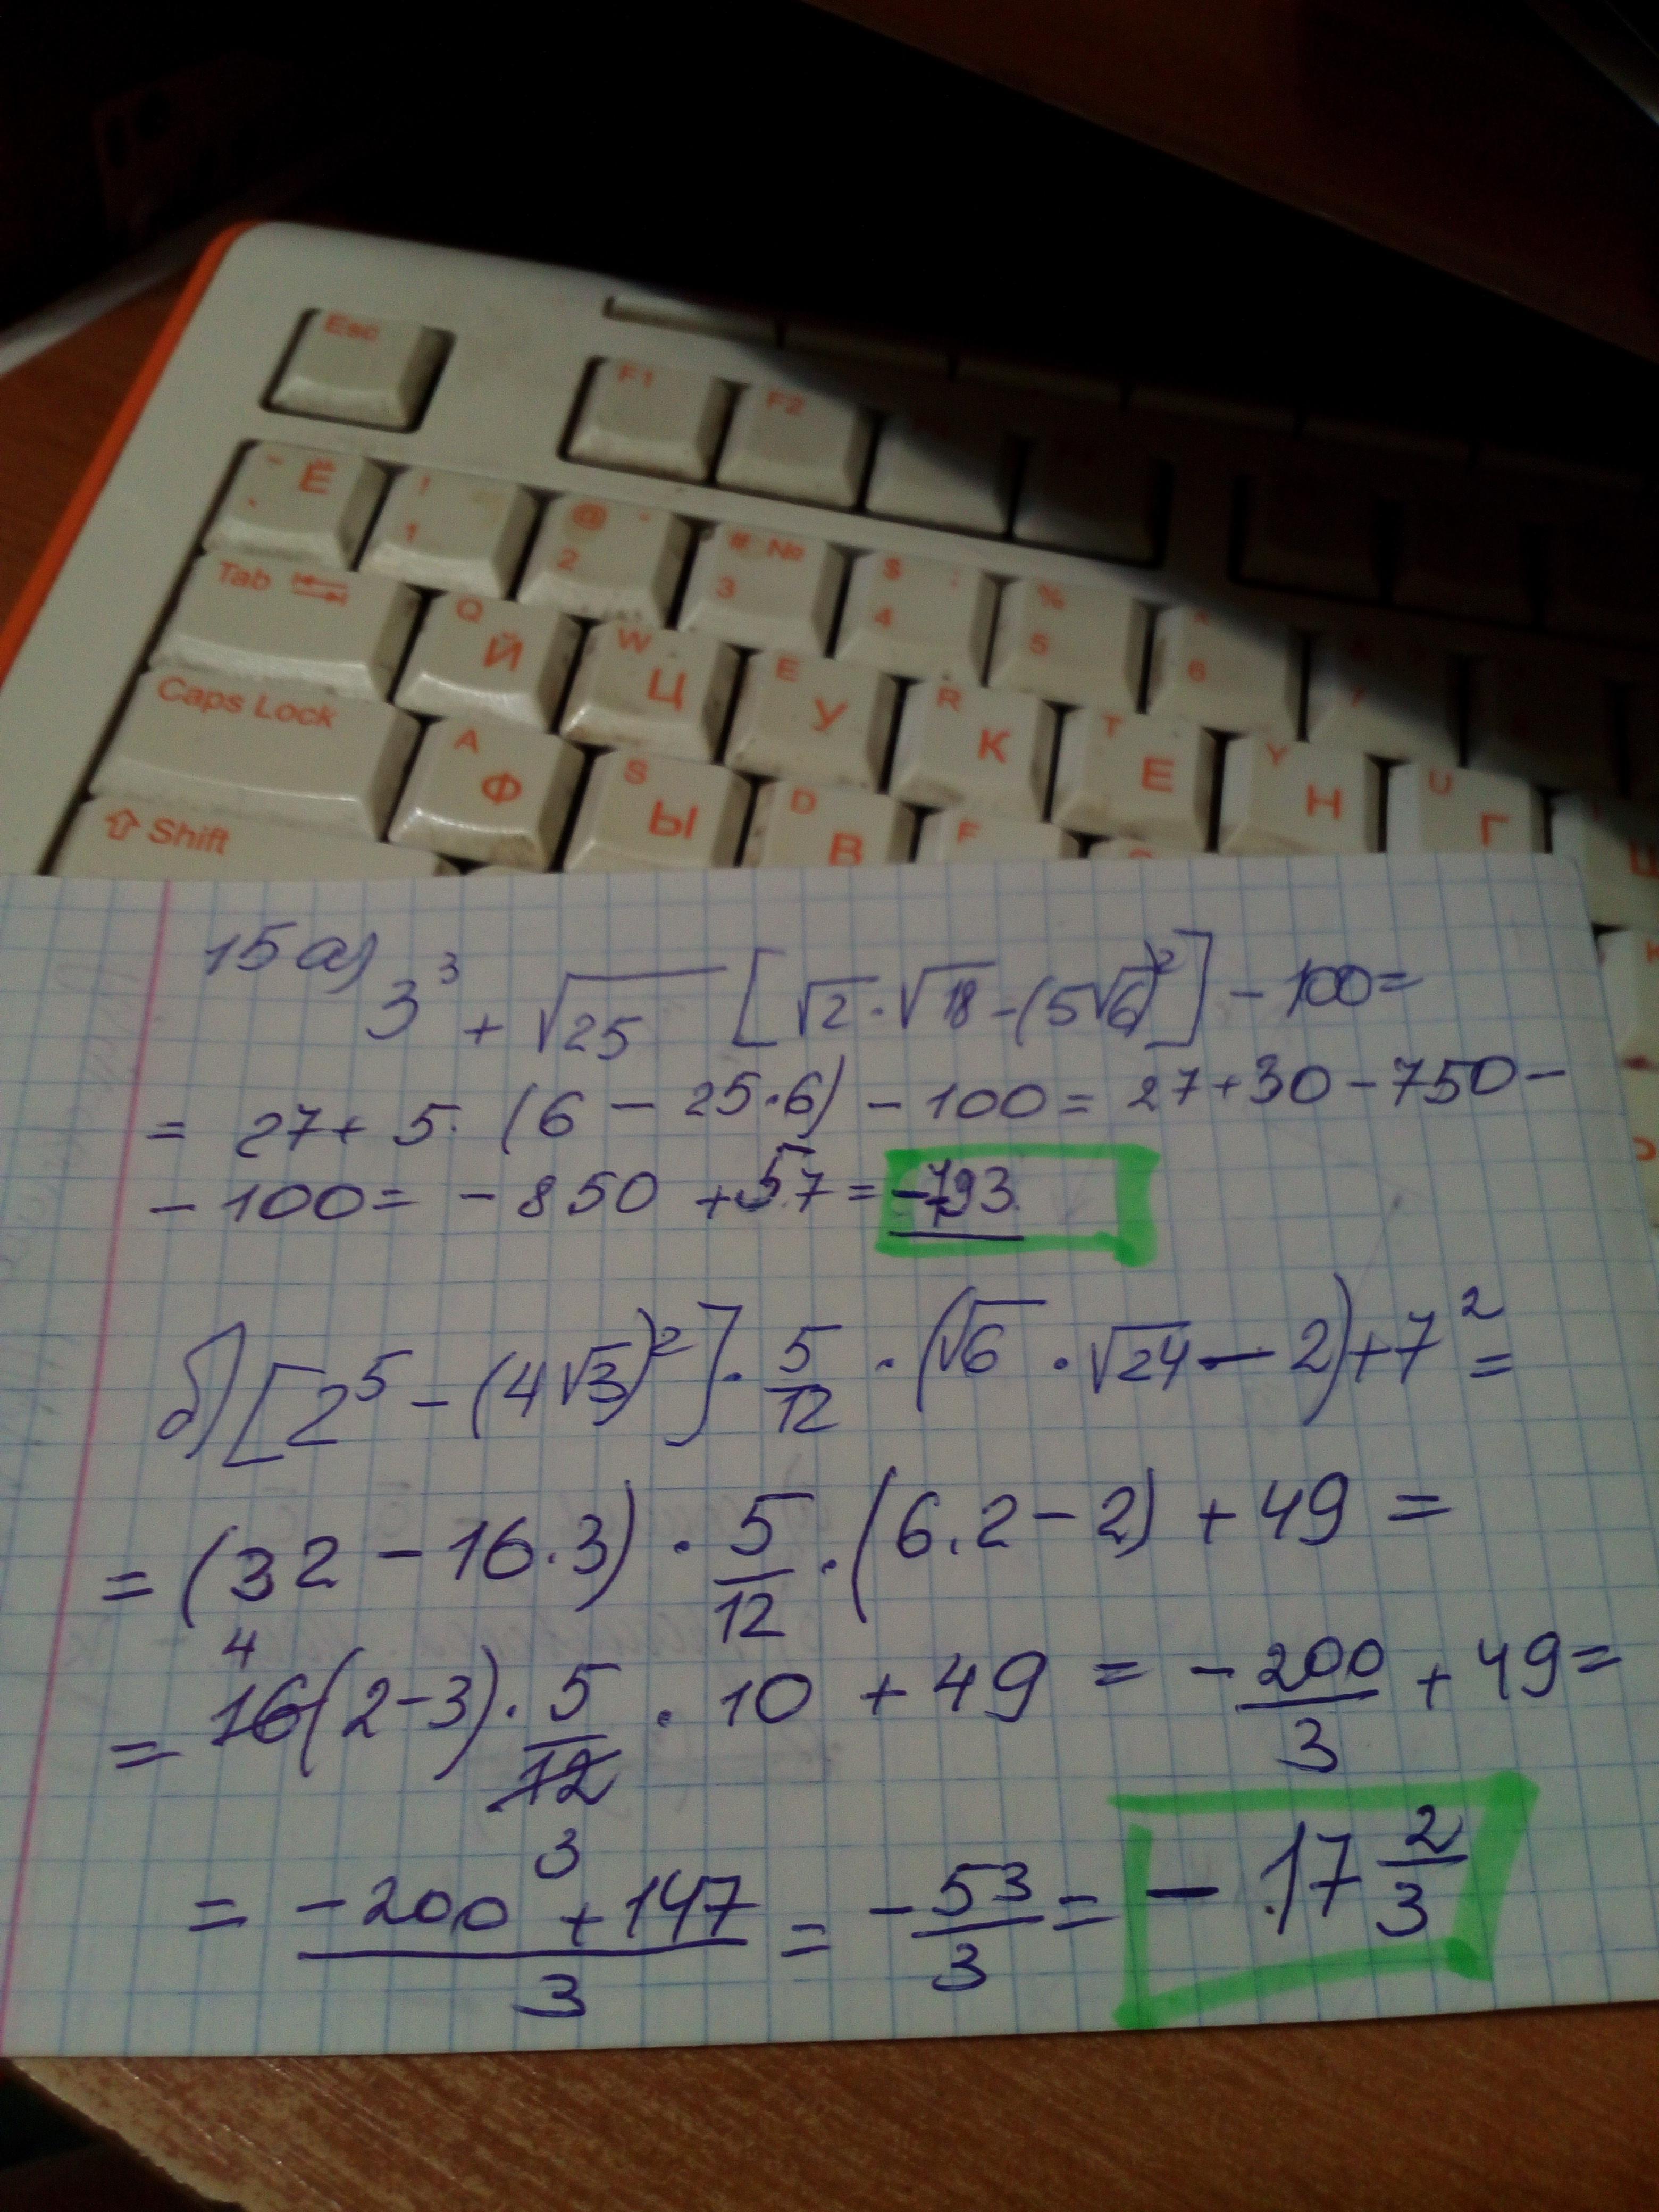 Esc F1 F2
~ Ё ` ! 1 @ " 2 # № 3 $ ; 4 % 5 6
Tab Q Й W Ц E У R К T Е Y Н U Г
Caps Lock A Ф S Ы D В F
Shift
15 а) 3³ + √25 [√2 · √18 - (5√6)²] - 100 =
= 27 + 5 · (6 - 25·6) - 100 = 27 + 30 - 750 -
- 100 = - 850 + 57 = -793
б) [2⁵ - (4√3)²] · 5/12 · (√6 · √24 - 2) + 7² =
= (32 - 16·3) · 5/12 · (6·2 - 2) + 49 =
4
= 16(2-3) · 5/12 · 10 + 49 = - 200/3 + 49 =
3
= (-200 + 147)/3 = -53/3 = - 17 2/3